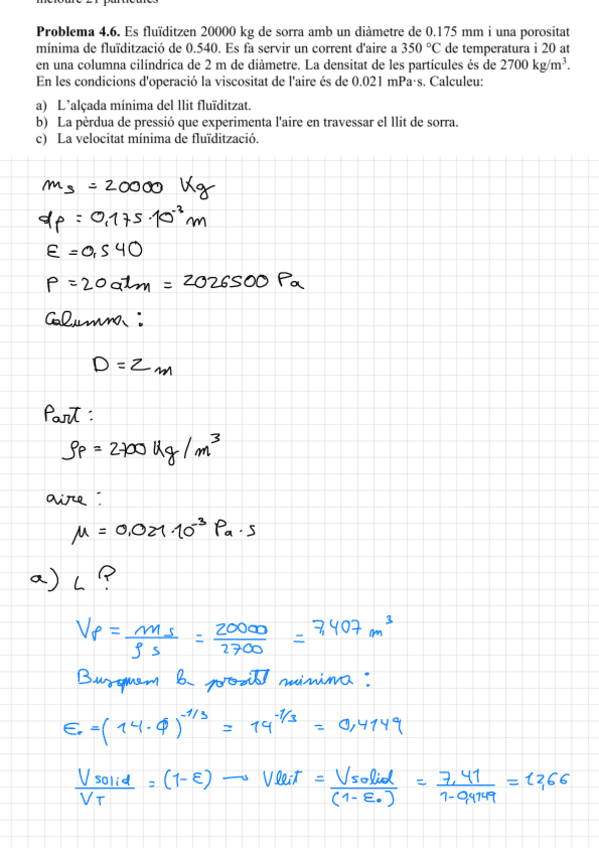 Problema 4.6. Es fluïditzen 20000 kg de sorra amb un diàmetre de 0.175 mm i una porositat
mínima de fluïdització de 0.540. Es fa servir un corrent d'aire a 350 °C de temperatura i 20 at
en una columna cilíndrica de 2 m de diàmetre. La densitat de les partícules és de 2700 kg/m³.
En les condicions d'operació la viscositat de l'aire és de 0.021 mPa·s. Calculeu:
a) L'alçada mínima del llit fluïditzat.
b) La pèrdua de pressió que experimenta l'aire en travessar el llit de sorra.
c) La velocitat mínima de fluïdització.
ms = 20000 Kg
dp = 0,175·10⁻³ m
ε = 0,540
P = 20 atm = 2026500 Pa
Columna:
D = 2 m
Part:
ρp = 2700 Kg/m³
aire:
μ = 0,021·10⁻³ Pa·s
a) L ?
Vp = ms / ρs = 20000 / 2700 = 7,407 m³
Busquem la minima:
ε₀ = (14·ϕ)^-1/3 = 14^-1/3 = 0,4149
V solid / VT = (1-ε) → Vllit = Vsolid / (1-ε₀) = 7,41 / 1-0,4149 = 12,66